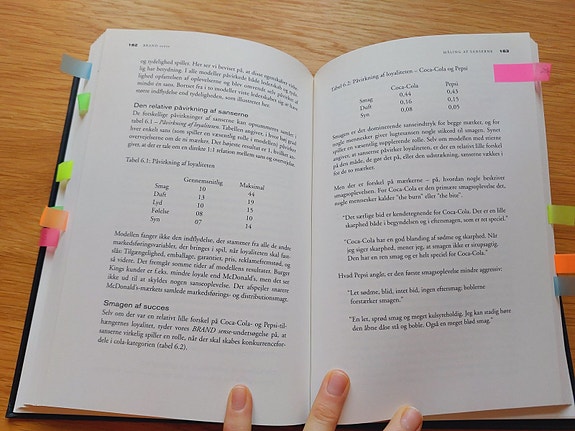 162 BRAND sense
og tydelighed spiller. Her ser vi beviset på, at disse egenskaber virke-
lig har betydning. I alle modeller påvirkede både lederskab og
oplevelserne og blev omvendt selv påvirket af
mindst én sans. Bortset fra i to modeller havde lederskab og klarhed
større indflydelse end tydeligheden, som illustreret her.
Den relative påvirkning af sanserne
De forskellige påvirkninger af sanserne kan opsummeres samlet i
tabel 6.1 – Påvirkning af loyaliteten. Tabellen angiver, i hvor høj grad
hver enkelt sans (som spiller en væsentlig rolle i modellen) påvirker
overvejelserne om de to mærker. Det højeste resultat er 1, hvilket an-
giver, at der er tale om en direkte 1:1 relation mellem sans og overvejelse.
Tabel 6.1: Påvirkning af loyaliteten
Gennemsnitlig Maksimal
Smag 10 44
Duft 13 19
Lyd 10 15
Følelse 08 10
Syn 07 14
Modellen fanger ikke den indflydelse, der stammer fra alle de andre
markedsføringsvariabler, der bringes i spil, når loyaliteten skal fast-
slås: Tilgængelighed, emballage, garantier, pris, reklamefremstød, og
så videre. Det fremgår somme tider af modellens resultater. Burger
Kings kunder er f.eks. mindre loyale end McDonald's, men det ser
ikke ud til at skyldes nogen sanseoplevelse. Det afspejler snarere
McDonald's-mærkets samlede markedsførings- og distributionsmagt.
Smagen af succes
Selv om der var en relativt lille forskel på Coca-Cola- og Pepsi-til-
hængernes loyalitet, tyder vores BRAND sense-undersøgelse på, at
sanserne virkelig spiller en rolle, når der skal skabes konkurrencefor-
dele i cola-kategorien (tabel 6.2).
MÅLING AF SANSERNE 163
Tabel 6.2: Påvirkning af loyaliteten – Coca-Cola og Pepsi
Coca-Cola Pepsi
Smag 0,44 0,43
Duft 0,16 0,15
Syn 0,08 0,05
Smagen er det dominerende sanseindtryk for begge mærker, og for
nogle mennesker giver lugtesansen nogle stikord til smagen. Synet
spiller en væsentlig supplerende rolle. Selv om modellen med stierne
angiver, at sanserne påvirker loyaliteten, er der en relativt lille forskel
på den måde, de gør det på, eller den udstrækning, sanserne vækker i
for de to mærker.
Men der er forskel på mærkerne – på, hvordan nogle beskriver
smagsoplevelsen. For Coca-Cola er den primære smagsoplevelse det,
nogle mennesker kalder "the burn" eller "the bite".
"Det særlige bid er kendetegnende for Coca-Cola. Det er en lille
skarphed både i begyndelsen og i eftersmagen, som er ret speciel."
"Coca-Cola har en god blanding af sødme og skarphed. Når
jeg siger skarphed, mener jeg, at smagen ikke er sirupsagtig.
Den har en ren smag og er helt speciel for Coca-Cola."
Hvad Pepsi angår, er den første smagsoplevelse mindre aggressiv:
"Let sødme, blid, intet bid, ingen eftersmag; boblerne
forstærker smagen."
"En let, sprød smag og meget kulsyreholdig. Jeg kan stadig høre
den åbne dåse stå og boble. Også en meget blød smag."